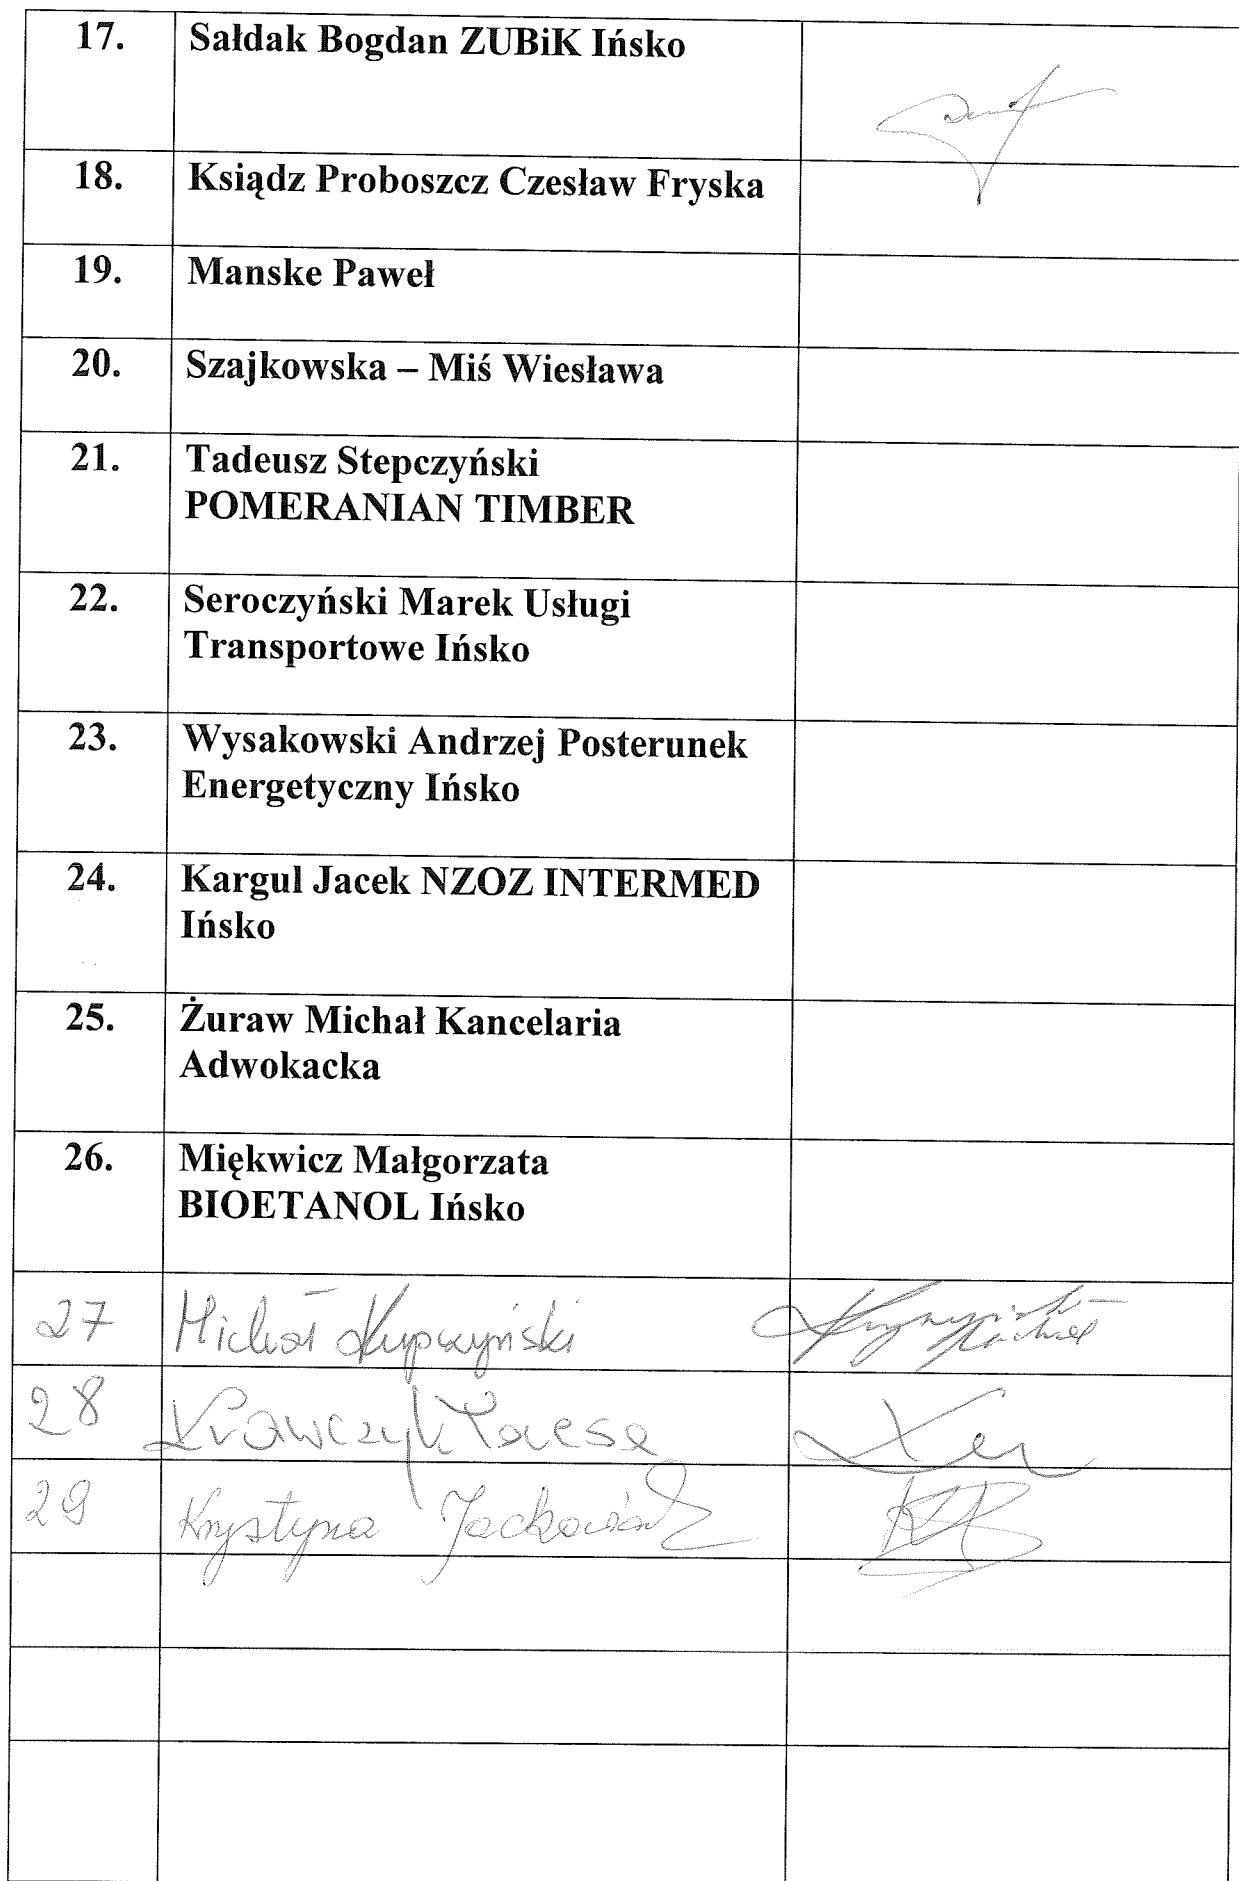 17. Sałdak Bogdan ZUBiK Ińsko
18. Ksiądz Proboszcz Czesław Fryska
19. Manske Paweł
20. Szajkowska – Miś Wiesława
21. Tadeusz Stepczyński
POMERANIAN TIMBER
22. Seroczyński Marek Usługi
Transportowe Ińsko
23. Wysakowski Andrzej Posterunek
Energetyczny Ińsko
24. Kargul Jacek NZOZ INTERMED
Ińsko
25. Żuraw Michał Kancelaria
Adwokacka
26. Miękwicz Małgorzata
BIOETANOL Ińsko
27 Michał
28 Krawczyk Teresa
29 Krystyna Jackowiak